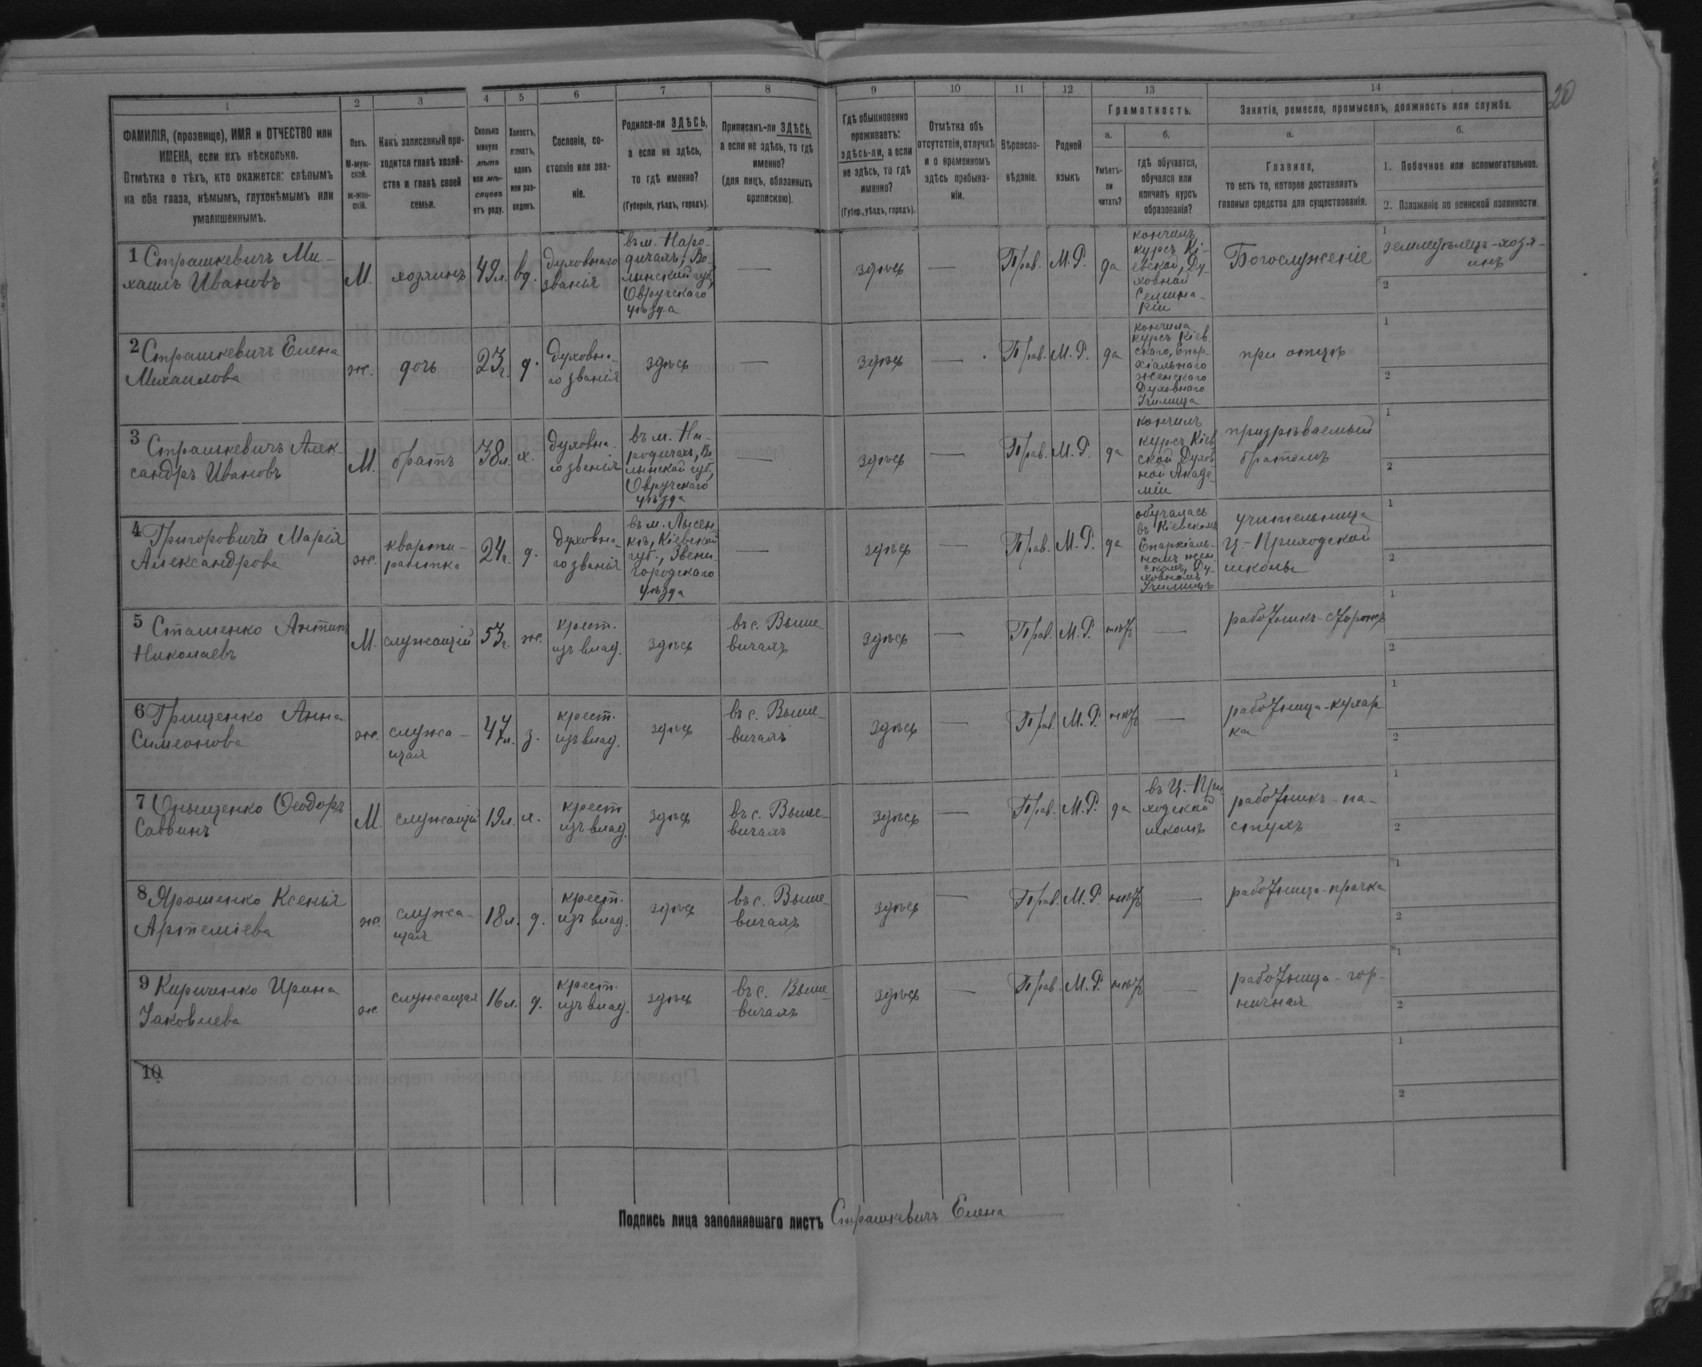 20
1
2
3
4
5
6
7
8
9
10
11
12
13
14
ФАМИЛІЯ, (прозвище), ИМЯ и ОТЧЕСТВО или
ИМЕНА, если ихъ нѣсколько.
Отмѣтка о тѣхъ, кто окажется: слѣпымъ
на оба глаза, нѣмымъ, глухонѣмымъ или
умалишеннымъ.
Полъ.
М-муж-
ской.
ж-жен-
скій.
Какъ записанный при-
ходится главѣ хозяй-
ства и главѣ своей
семьи.
Сколько
минуло
лѣтъ
или мѣ-
сяцевъ
отъ роду.
Холостъ,
женатъ,
вдовъ
или раз-
веденъ.
Сословіе, со-
стояніе или зва-
ніе.
Родился-ли ЗДѢСЬ,
а если не здѣсь,
то гдѣ именно?
(Губернія, уѣздъ, городъ).
Приписанъ-ли ЗДѢСЬ,
а если не здѣсь, то гдѣ
именно?
(для лицъ, обязанныхъ
припискою).
Гдѣ обыкновенно
проживаетъ:
здѣсь-ли, а если
не здѣсь, то гдѣ
именно?
(Губер., уѣздъ, городъ).
Отмѣтка объ
отсутствіи, отлучкѣ
и о временномъ
здѣсь пребыва-
ніи.
Вѣроиспо-
вѣданіе.
Родной
языкъ
Грамотность.
а.
б.
Умѣетъ-
ли
читать?
гдѣ обучается,
обучался или
кончилъ курсъ
образованія?
Занятіе, ремесло, промыселъ, должность или служба.
а.
б.
Главное,
то есть то, которое доставляетъ
главныя средства для существованія.
1. Побочное или вспомогательное.
2. Положеніе по воинской повинности.
1 Страшкевичъ Ми-
хаилъ Ивановъ
М.
хозяинъ
49 л.
вд.
духовнаго
званія
въ м. Наро-
дичахъ, Во-
лынской губ,
Овручскаго
уѣзда
—
здѣсь
—
Прав.
М.Р.
да
кончилъ
курсъ Кі-
евской Ду-
ховной
Семина-
ріи
Богослуженіе
1
землевлѣлецъ-хозя-
инъ
2
2 Страшкевичъ Елена
Михаилова
ж.
дочь
23 г.
д.
духовна-
го званія
здѣсь
—
здѣсь
—
Прав.
М.Р.
да
кончила
курсъ Кіев
скаго, Епар-
хіальнаго
женскаго
Духовнаго
Училища
при отцѣ
1
2
3 Страшкевичъ Алек-
сандръ Ивановъ
М.
братъ
38 л.
х.
духовна-
го званія
въ м. На-
родичахъ, Во
лынской губ,
Овручскаго
уѣзда
здѣсь
—
Прав.
М.Р.
да
кончилъ
курсъ Кіев
ской Духов
ной Акаде
міи
призрѣваемый
братомъ
1
2
4 Григоровичъ Марія
Александрова
ж.
кварти-
рантка
24 г.
д.
духовна-
го званія
въ м. Лысен-
кѣ, Кіевской
губ., Звени-
городскаго
уѣзда
—
здѣсь
—
Прав.
М.Р.
да
обучалась
въ Кіевскомъ
Епархіаль-
номъ жен
скомъ, Ду-
ховномъ
Училищѣ
учительница
Ц.-Приходской
школы
1
2
5 Сташенко Антипъ
Николаевъ
М.
служащій
53 г.
ж.
крест.
изъ влад.
здѣсь
въ с. Выше-
вичахъ
здѣсь
—
Прав.
М.Р.
нѣтъ
—
работникъ-сторожъ
1
2
6 Грищенко Анна
Симеонова
ж.
служа-
щая
47 л.
з.
крест.
изъ влад.
здѣсь
въ с. Выше-
вичахъ
здѣсь
—
Прав.
М.Р.
нѣтъ
—
работница-кухар
ка
1
2
7 Онищенко Ѳеодоръ
Саввинъ
М.
служащій
19 л.
х.
крест
изъ влад.
здѣсь
въ с. Выше-
вичахъ
здѣсь
—
Прав.
М.Р.
да
въ Ц.-При
ходской
школѣ
работникъ-па-
стухъ
1
2
8 Ярошенко Ксенія
Артеміева
ж.
служа-
щая
18 л.
д.
крест.
изъ влад.
здѣсь
въ с. Выше-
вичахъ
здѣсь
—
Прав.
М.Р.
нѣтъ
—
работница-прачка
1
2
9 Кириченко Ирина
Іаковлева
ж
служащая
16 л.
д.
крест.
изъ влад.
здѣсь
въ с. Выше-
вичахъ
здѣсь
—
Прав.
М.Р.
нѣтъ
—
работница-гор-
ничная
1
2
10
1
2
Подпись лица заполнявшаго листъ Страшкевичъ Елена